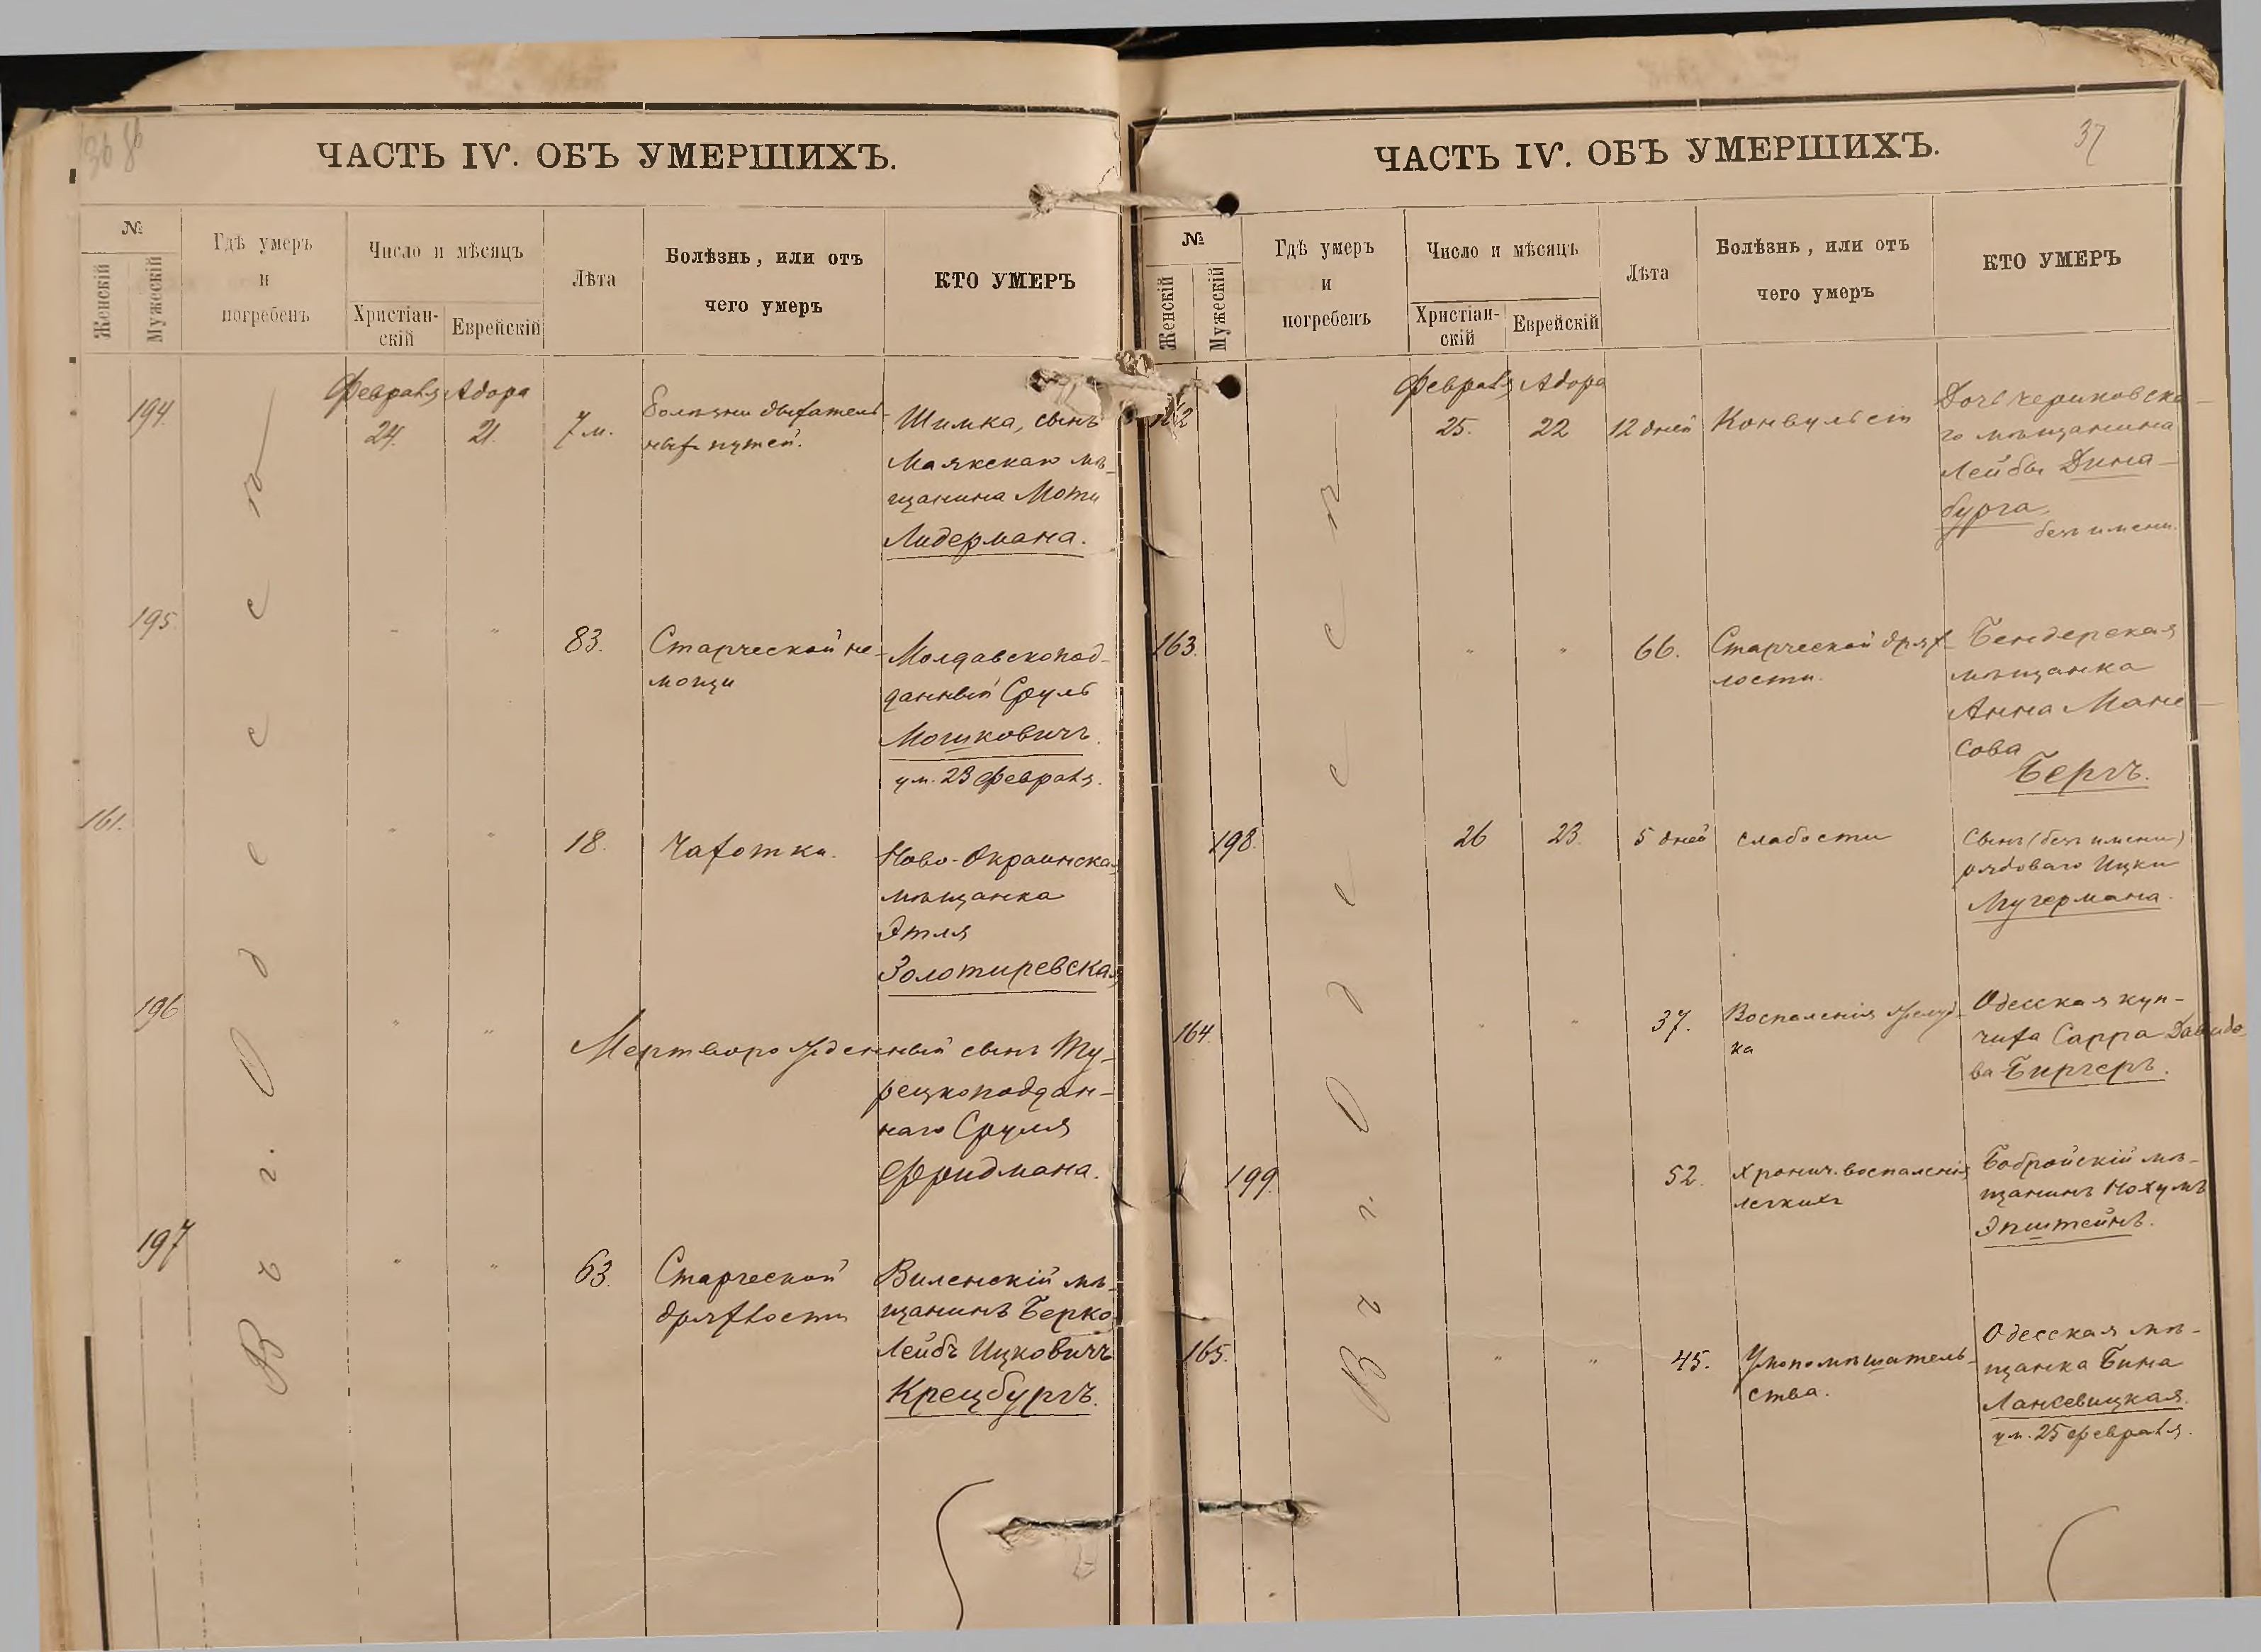 36
ЧАСТЬ IV. ОБЪ УМЕРШИХЪ.
№
Женскій
Мужескій
Гдѣ умеръ
и
погребенъ
Число и мѣсяцъ
Христіан-
скій
Еврейскій
Лѣта
Болѣзнь, или отъ
чего умеръ
КТО УМЕРЪ
Въ г. Одессѣ
Февраля Адора
194. 24. 21. 7 м. Болѣзни дыхатель-
ныхъ путей.
Шимка, сынъ
Маякскаго мѣ-
щанина Моти
Лидермана.
195. " " 83. Старческой не-
мощи
Молдавскопод-
данный Сруль
Мошковичъ.
ум. 23 февраля.
161. " " 18. Чахотки.
Ново-Украинская
мѣщанка
Этля
Золотиревская
196 " " Мертворожденный сынъ Ту-
рецкоподдан-
наго Сруля
Фридмана.
197 " " 63. Старческой
дряхлости
Виленскій мѣ-
щанинъ Берко
Лейбъ Ицковичъ
Крецбургъ.
37
ЧАСТЬ IV. ОБЪ УМЕРШИХЪ.
№
Женскій
Мужескій
Гдѣ умеръ
и
погребенъ
Число и мѣсяцъ
Христіан-
скій
Еврейскій
Лѣта
Болѣзнь, или отъ
чего умеръ
КТО УМЕРЪ
Въ г. Одессѣ
Февраля Адора
162 25. 22 12 дней Конвульсіи
Дочь чериковска-
го мѣщанина
Лейбы Дина-
бурга,
безъ имени.
163. " " 66. Старческой дрях-
лости.
Бендерская
мѣщанка
Анна Мане-
сова
Бергъ.
198. 26 23. 5 дней слабости
Сынъ (безъ имени)
рядоваго Ицки
Мугермана.
164. " " 37. Воспаленія желуд-
ка
Одесская куп-
чиха Сарра Давидо-
ва Биргеръ.
199. 52. Хронич. воспаленія
легкихъ
мѣ-
щанинъ Нохумъ
Эпштейнъ.
165. " " 45. Умопомѣшатель-
ства.
Одесская мѣ-
щанка Бина
Лансевицкая.
ум. 25 февраля.